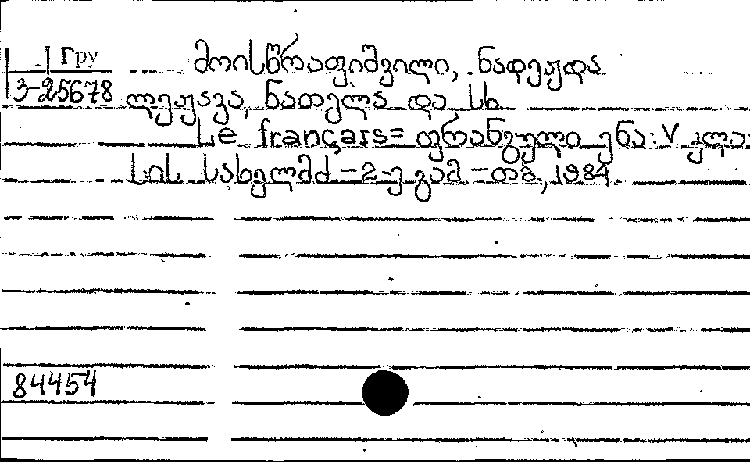 Гру
3-25678
მოისწრაფიშვილი, ნადეჟდა
ლეჟავა, ნათელა და სხ.
Le français = ფრანგული ენა: V კლა-
სის სახელმძ. - 2-ე გამ. - თბ., 1984.
84454